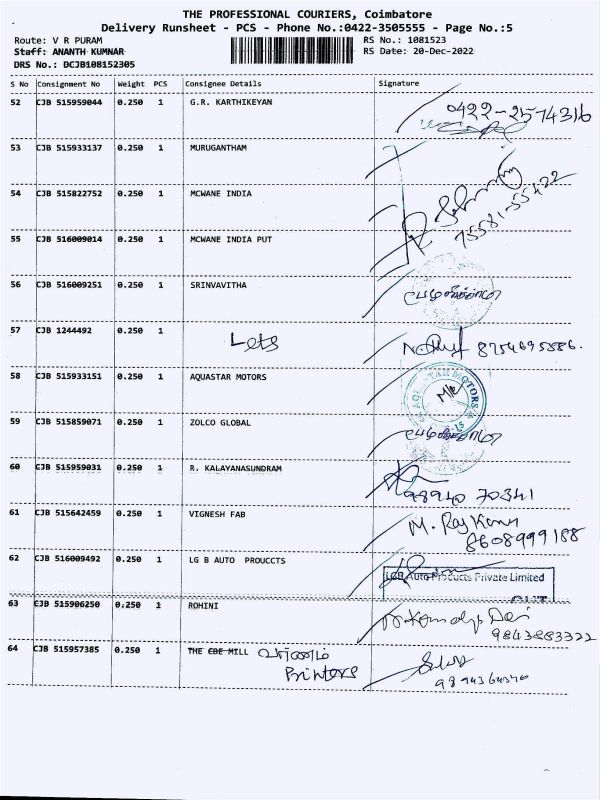 THE PROFESSIONAL COURIERS, Coimbatore
Delivery Runsheet - PCS - Phone No.:0422-3505555 - Page No.:5
Route: V R PURAM RS No.: 1081523
Staff: ANANTH KUMNAR RS Date: 20-Dec-2022
DRS No.: DCJB108152305
S No Consignment No Weight PCS Consignee Details Signature
52 CJB 515959044 0.250 1 G.R. KARTHIKEYAN 0422-2574316
53 CJB 515933137 0.250 1 MURUGANTHAM
54 CJB 515822752 0.250 1 MCWANE INDIA
75581-55422
55 CJB 516009014 0.250 1 MCWANE INDIA PUT
56 CJB 516009251 0.250 1 SRINVAVITHA
57 CJB 1244492 0.250 1 Lets 8754695586.
58 CJB 515933151 0.250 1 AQUASTAR MOTORS
59 CJB 515859071 0.250 1 ZOLCO GLOBAL
60 CJB 515959031 0.250 1 R. KALAYANASUNDRAM 98940 70341
61 CJB 515642459 0.250 1 VIGNESH FAB M. Raj Kumar
8608999188
62 CJB 516009492 0.250 1 LG B AUTO PROUCCTS
LGB Auto Products Private Limited
63 CJB 515906250 0.250 1 ROHINI
9843883322
64 CJB 515957385 0.250 1 THE CBE MILL வர்ணம்
Printers